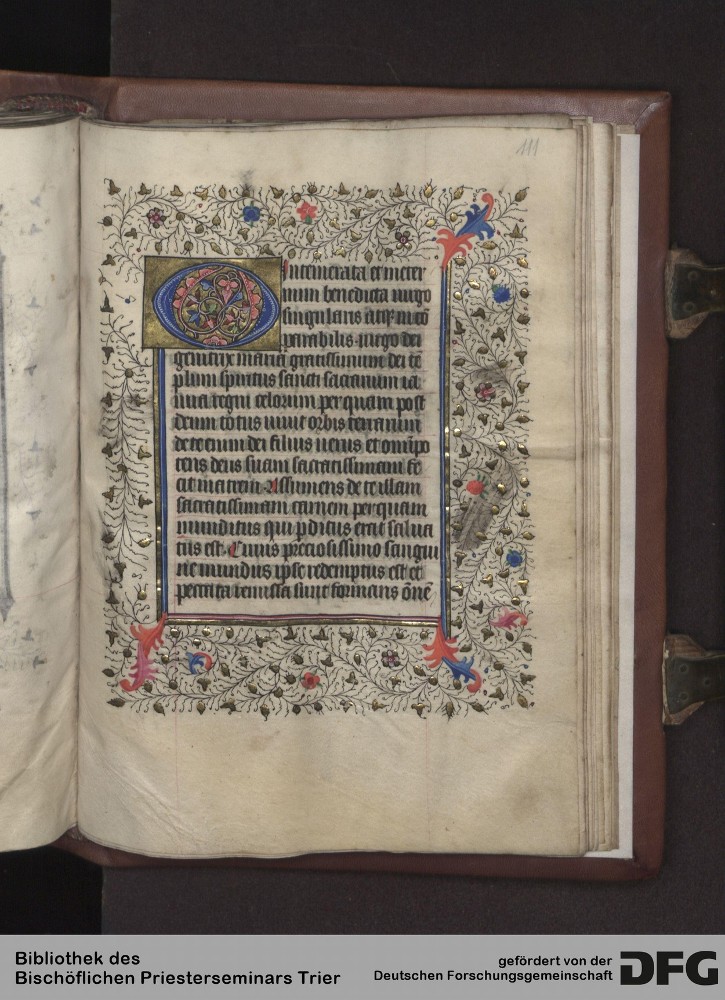 111
O Intemerata et in eter
num benedicta uirgo
singularis atq; inco
parabilis uirgo dei
genitrix maria gratissimum dei te
plum spiritus sancti sacrarium ia
nua regni celorum per quam post
deum totus uiuit orbis terrarum
de te enim dei filius uerus et omipo
tens deus suam sacratissimam fe
cit matrem. Assumens de te illam
sacratissimam carnem per quam
mundus qui pditus erat salua
tus est. Cuius preciosissimo sangui
ne mundus ipse redemptus est et
peccata remissa sunt
Bibliothek des
Bischöflichen Priesterseminars Trier
gefördert von der
Deutschen Forschungsgemeinschaft
DFG